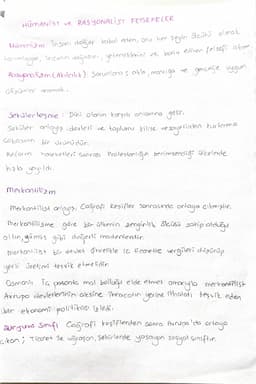 HÜMANİST ve RASYONALİST FELSEFELER
Hümanizm: İnsanı değer kabul eden, onu her şeyin ölçüsü olarak
tanımlayan, insanın doğasını, yeteneklerini ve
Rasyonalizm (Akılcılık): Sorunlara akla, mantığa ve gerçeğe uygun
çözümler aramak.
Sekülerleşme: Dini olanın karşıtı anlamına gelir.
Seküler anlayış devleti ve toplumu kilise kurtarma
çabasının bir ürünüdür.
Reform hareketleri sonrası Protestanlığın benimsendiği ülkelerde
hızla yayıldı.
Merkantilizm
Merkantilist anlayış, Coğrafi Keşifler sonrasında ortaya çıkmıştır.
Merkantilizme göre bir ülkenin zenginlik ölçüsü sahip olduğu
altın, gümüş gibi değerli madenlerdir.
Merkantilist bir devlet öncelikle iç ticarette vergileri düşürüp
yerli üretimi teşvik etmelidir.
Osmanlı iç pazarda mal bolluğu elde etmek amacıyla merkantilist
Avrupa devletlerinin aksine ihracatın yerine ithalatı teşvik eden
bir ekonomi politikası izledi.
Burjuva Sınıfı Coğrafi keşiflerden sonra Avrupa'da ortaya
çıkan; ticaret ile uğraşan, şehirlerde yaşayan sosyal sınıftır.